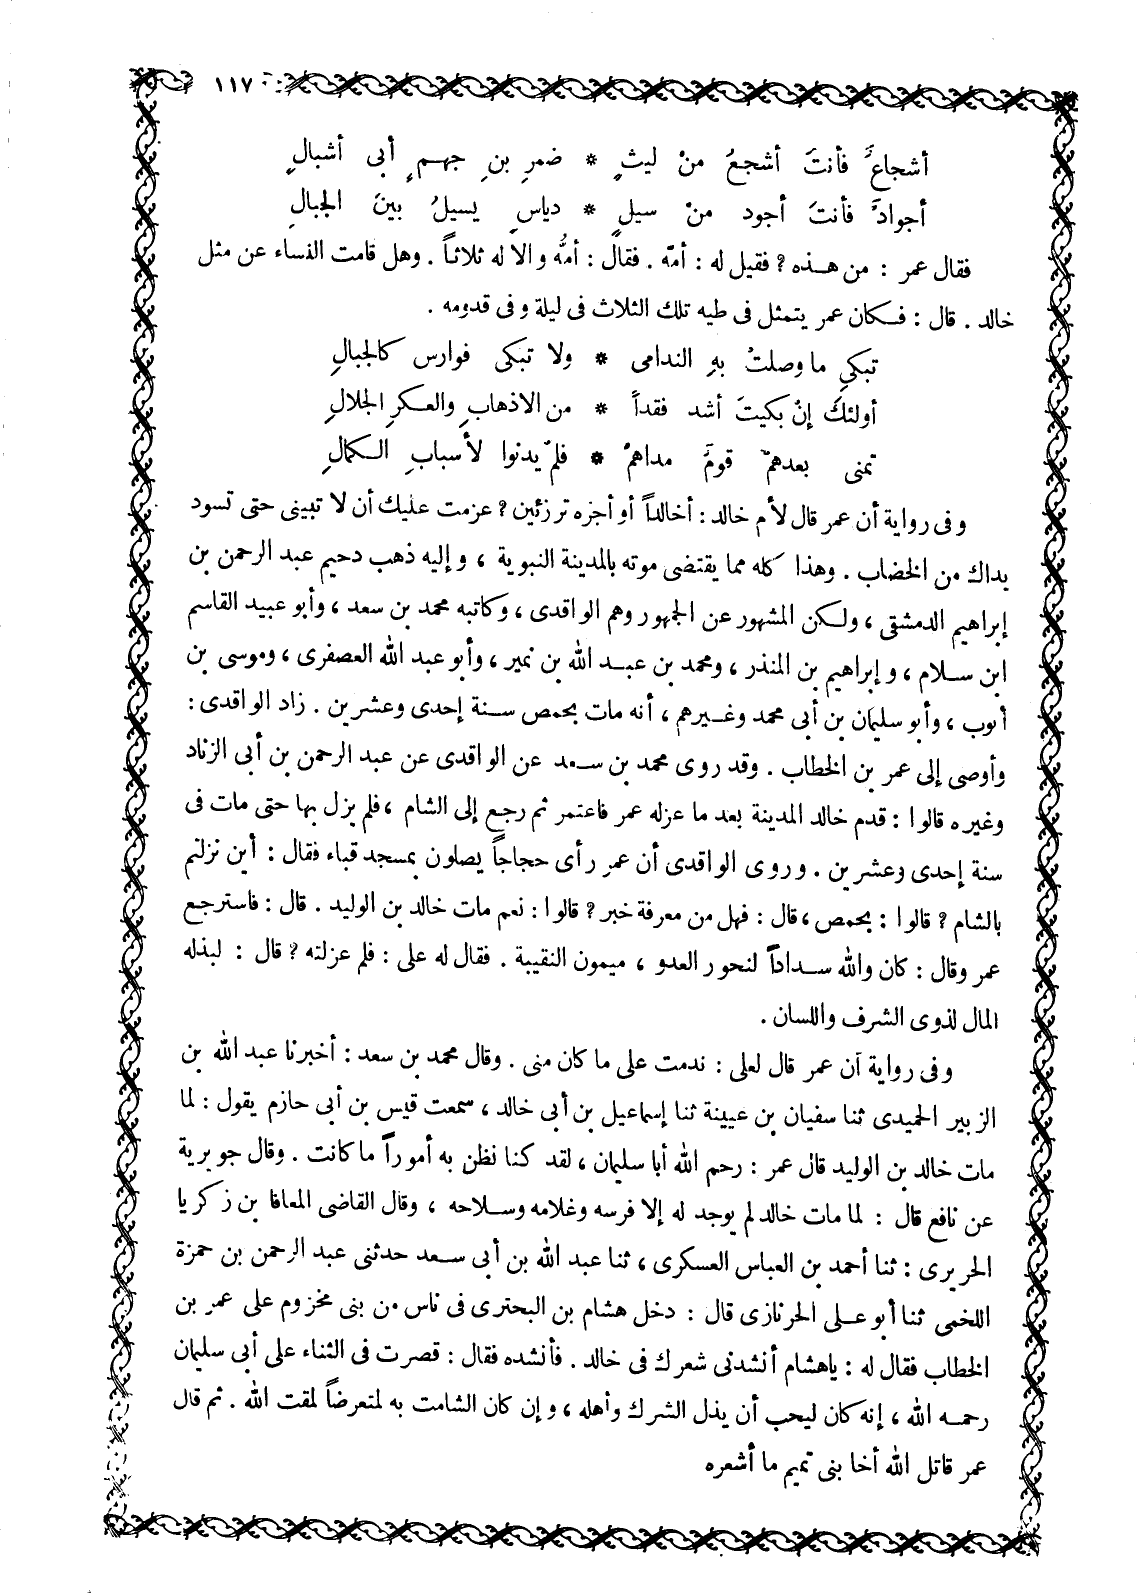 ١١٧
أشجاعَّ فأنتَ أشجعُ منْ ليثٍ * ضمرِ بنِ جهمٍ أبى أشبالٍ
أجوادَّ فأنتَ أجود منْ سيلٍ * دياسٍ يسيلُ بينَ الجبالِ
فقال عمر : من هذه ? فقيل له : أمّه . فقال : أمُّه والاله ثلاثاً . وهل قامت النساء عن مثل
خالد . قال : فكان عمر يتمثل فى طيه تلك الثلاث فى ليلة وفى قدومه .
تبكي ما وصلتْ بهِ الندامى * ولا تبكى فوارس كالجبالِ
أولئكَ إنْ بكيتَ أشد فقداً * من الاذهابِ والعكرِ الجلالِ
تمنى بعدهمّ قومٌ مداهمْ * فلمْ يدنوا لأسبابِ الكمالِ
وفى رواية أن عمر قال لأم خالد : أخالداً أو أجزه ترزئين ? عزمت عليك أن لا تبينى حتى تسود
يداك من الخضاب . وهذا كله مما يقتضى موته بالمدينة النبوية ، وإليه ذهب دحيم عبد الرحمن بن
إبراهيم الدمشقى ، ولكن المشهور عن الجمهور وهم الواقدى ، وكاتبه محمد بن سعد ، وأبو عبيد القاسم
ابن سلام ، وإبراهيم بن المنذر ، ومحمد بن عبد الله بن نمير ، وأبو عبد الله العصفرى ، وموسى بن
أيوب ، وأبو سليمان بن أبى محمد وغيرهم ، أنه مات بحمص سنة إحدى وعشرين . زاد الواقدى :
وأوصى إلى عمر بن الخطاب . وقد روى محمد بن سعد عن الواقدى عن عبد الرحمن بن أبى الزناد
وغيره قالوا : قدم خالد المدينة بعد ما عزله عمر فاعتمر ثم رجع إلى الشام ، فلم يزل بها حتى مات فى
سنة إحدى وعشرين . وروى الواقدى أن عمر رأى حجاجاً يصلون بمسجد قباء فقال : أين نزلتم
بالشام ? قالوا : بحمص ، قال : فهل من معرفة خبر ? قالوا : نعم مات خالد بن الوليد . قال : فاسترجع
عمر وقال : كان والله سداداً لنحور العدو ، ميمون النقيبة . فقال له على : فلم عزلته ? قال : لبذله
المال لذوى الشرف واللسان .
وفى رواية أن عمر قال لعلى : ندمت على ما كان منى . وقال محمد بن سعد : أخبرنا عبد الله بن
الزبير الحميدى ثنا سفيان بن عيينة ثنا إسماعيل بن أبى خالد ، سمعت قيس بن أبى حازم يقول : لما
مات خالد بن الوليد قال عمر : رحم الله أبا سليمان ، لقد كنا نظن به أموراً ما كانت . وقال جويرية
عن نافع قال : لما مات خالد لم يوجد له إلا فرسه وغلامه وسلاحه ، وقال القاضى المعافا بن زكريا
الحريرى : ثنا أحمد بن العباس العسكرى ، ثنا عبد الله بن أبى سعد حدثنى عبد الرحمن بن حمزة
اللخمى ثنا أبو على الحرنازى قال : دخل هشام بن البحترى فى ناس من بنى مخزوم على عمر بن
الخطاب فقال له : ياهشام أنشدنى شعرك فى خالد . فأنشده فقال : قصرت فى الثناء على أبى سليمان
رحمه الله ، إنه كان ليحب أن يذل الشرك وأهله ، وإن كان الشامت به لمتعرضاً لمقت الله . ثم قال
عمر قاتل الله أخا بنى تميم ما أشعره